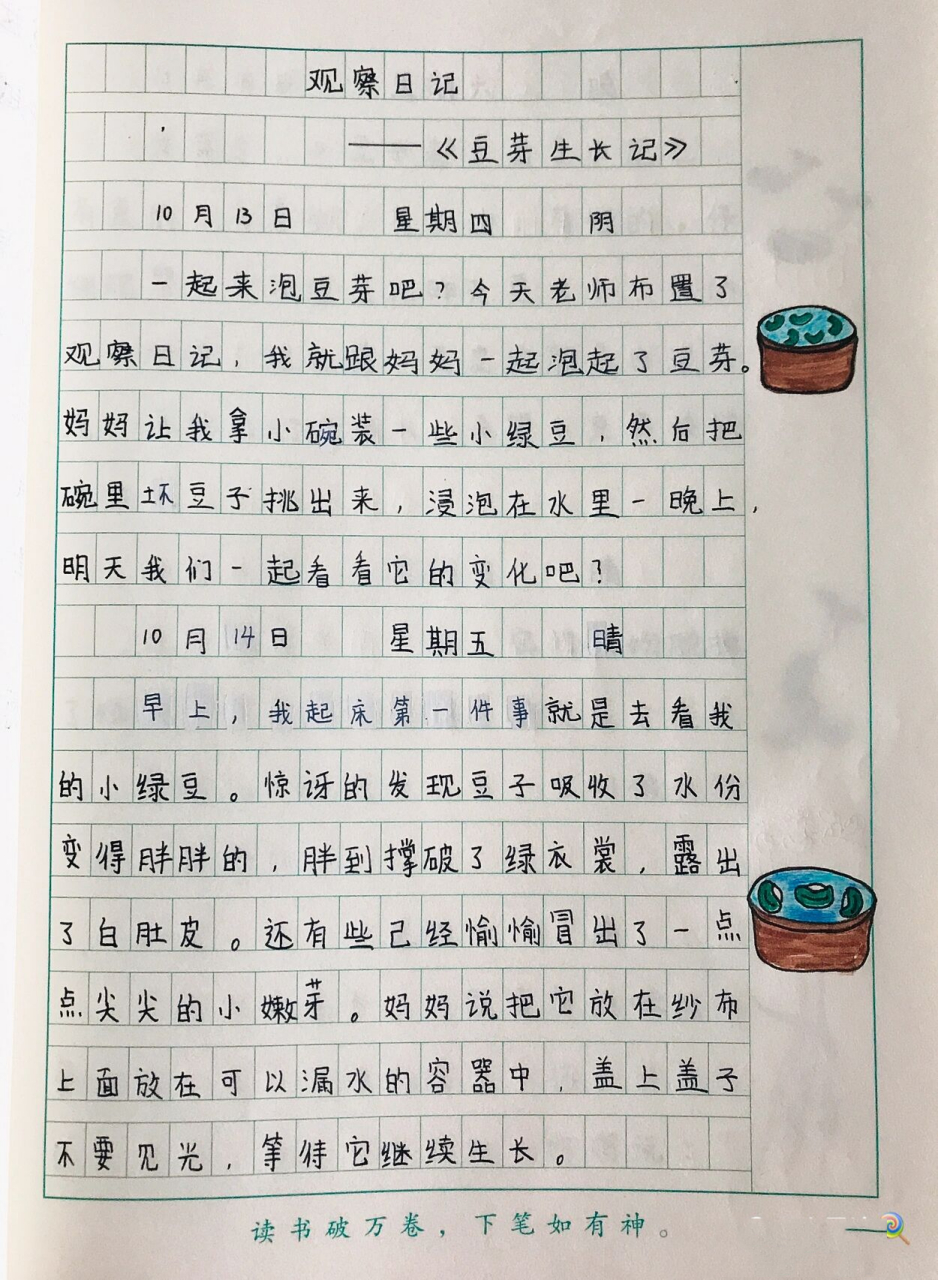 观察日记
——《豆芽生长记》
10月13日 星期四 阴
一起来泡豆芽吧?今天老师布置了
观察日记,我就跟妈妈一起泡起了豆芽。
妈妈让我拿小碗装一些小绿豆,然后把
碗里坏豆子挑出来,浸泡在水里一晚上,
明天我们一起看看它的变化吧?
10月14日 星期五 晴
早上,我起床第一件事就是去看我
的小绿豆。惊讶的发现豆子吸收了水份
变得胖胖的,胖到撑破了绿衣裳,露出
了白肚皮。还有些己经愉愉冒出了一点
点尖尖的小嫩芽。妈妈说把它放在纱布
上面放在可以漏水的容器中,盖上盖子
不要见光,等待它继续生长。
读书破万卷,下笔如有神。